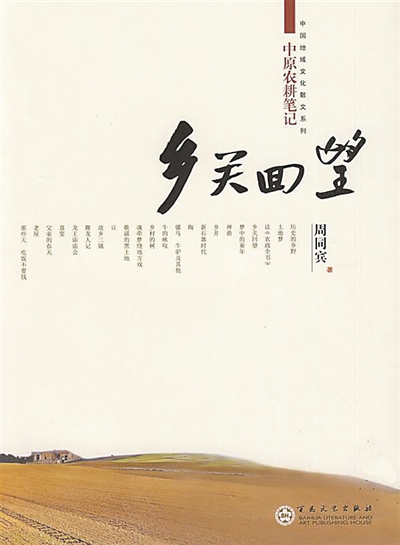 中国地域文化散文系列
中原农耕笔记
乡关回望
周同宾 著
历史的乡野
土地梦
读《农政全书》
乡关回望
梦中的童年
神曲
乡井
新石器时代
陶
骡马 牛驴及其他
牛的咏叹
乡村的树
魂牵梦绕地方戏
歌谣的黑土地
豆
故乡三镇
舞龙人记
龙王庙庙会
喜宴
父亲的春天
老屋
那些天 吃饭不要钱
百花文艺出版社
BAIHUA LITERATURE AND
ART PUBLISHING HOUSE